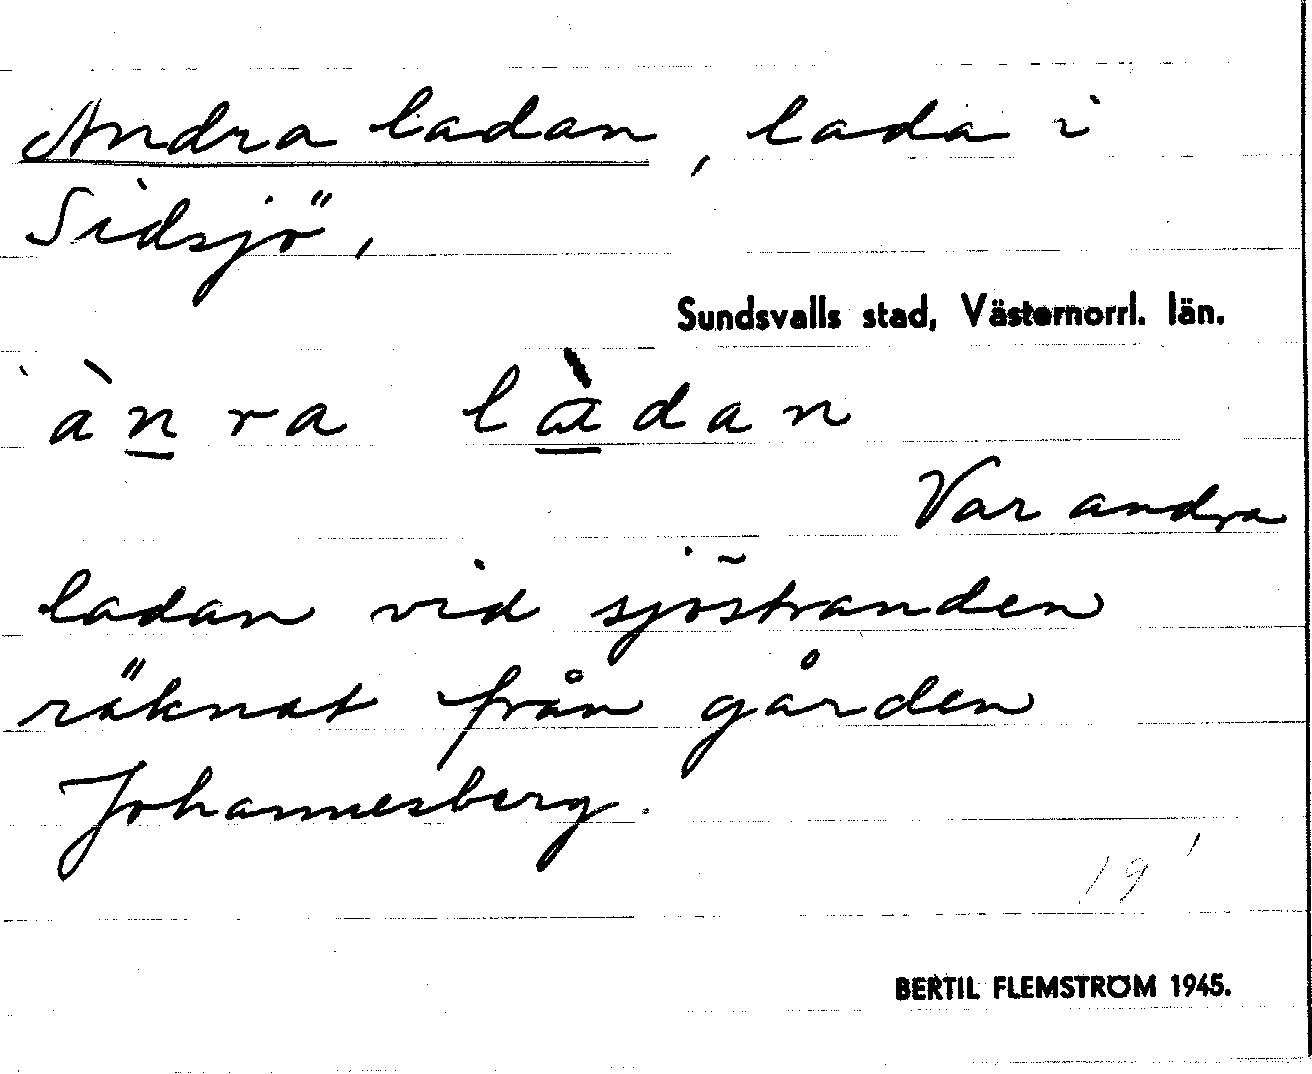 Andra ladan, lada i
Sidsjö,
Sundsvalls stad, Västernorrl. län.
àn̲ra là̲dan
Var andra
ladan vid sjöstranden
räknat från gården
Johannesberg.
19
BERTIL FLEMSTRÖM 1945.